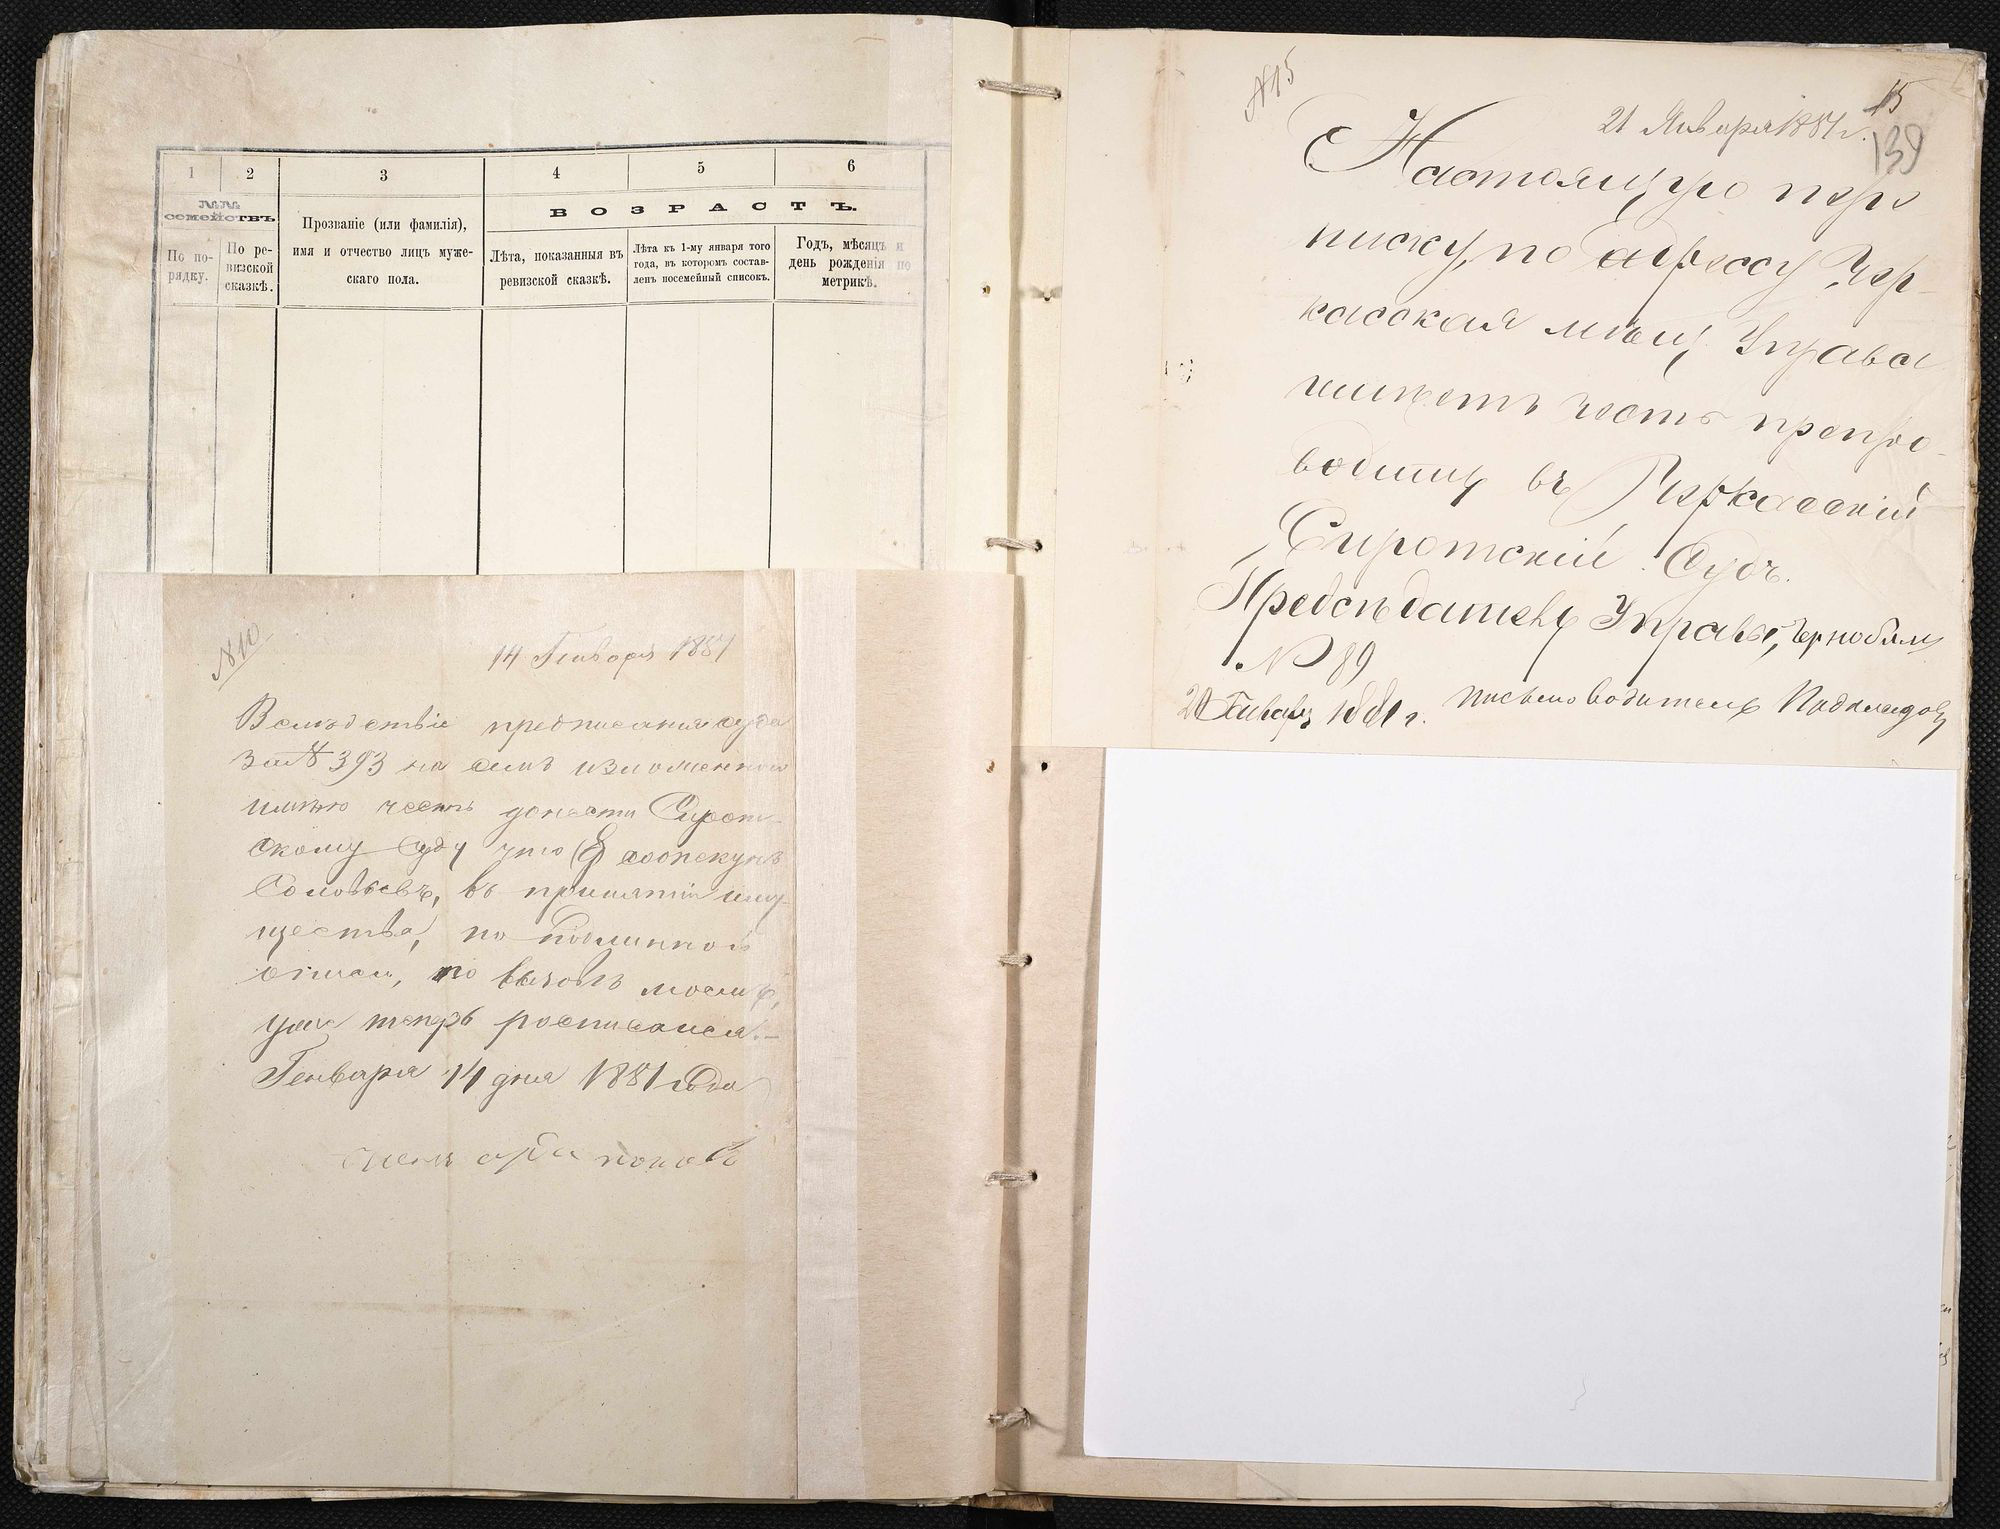 1 2 3 4 5 6
№№ семействъ.
По порядку.
По ревизской сказкѣ.
Прозваніе (или фамилія),
имя и отчество лицъ муже-
скаго пола.
ВОЗРАСТЪ.
Лѣта, показанныя въ
ревизской сказкѣ.
Лѣта къ 1-му января того
года, въ которомъ состав-
ленъ посемейный списокъ.
Годъ, мѣсяцъ и
день рожденія по
метрикѣ.
№ 10
14 Генваря 1881
Вслѣдствіе предписания суда
за № 393 на семъ изложенного
имѣю честь донести Сирот-
скому Суду что соопекунъ
Соловьевъ, въ принятіи иму-
щества, по подлинной
описи, по вызовѣ моемъ,
уже теперь росписался.
Генваря 14 дня 1881 года
№ 15
21 Января 1881 г.
15
139
Настоящую пере
писку, по адрессу Чер-
касская мѣщ. Управа
имѣетъ честь препро-
водить въ Черкасскій
Сиротскій Судъ.
Предсѣдатель Управы,
№ 89
Генваря 1881 г. письмоводитель